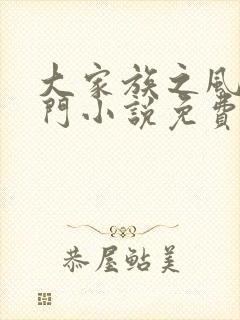 大家族之風
門小說免費
恭屋鮎美